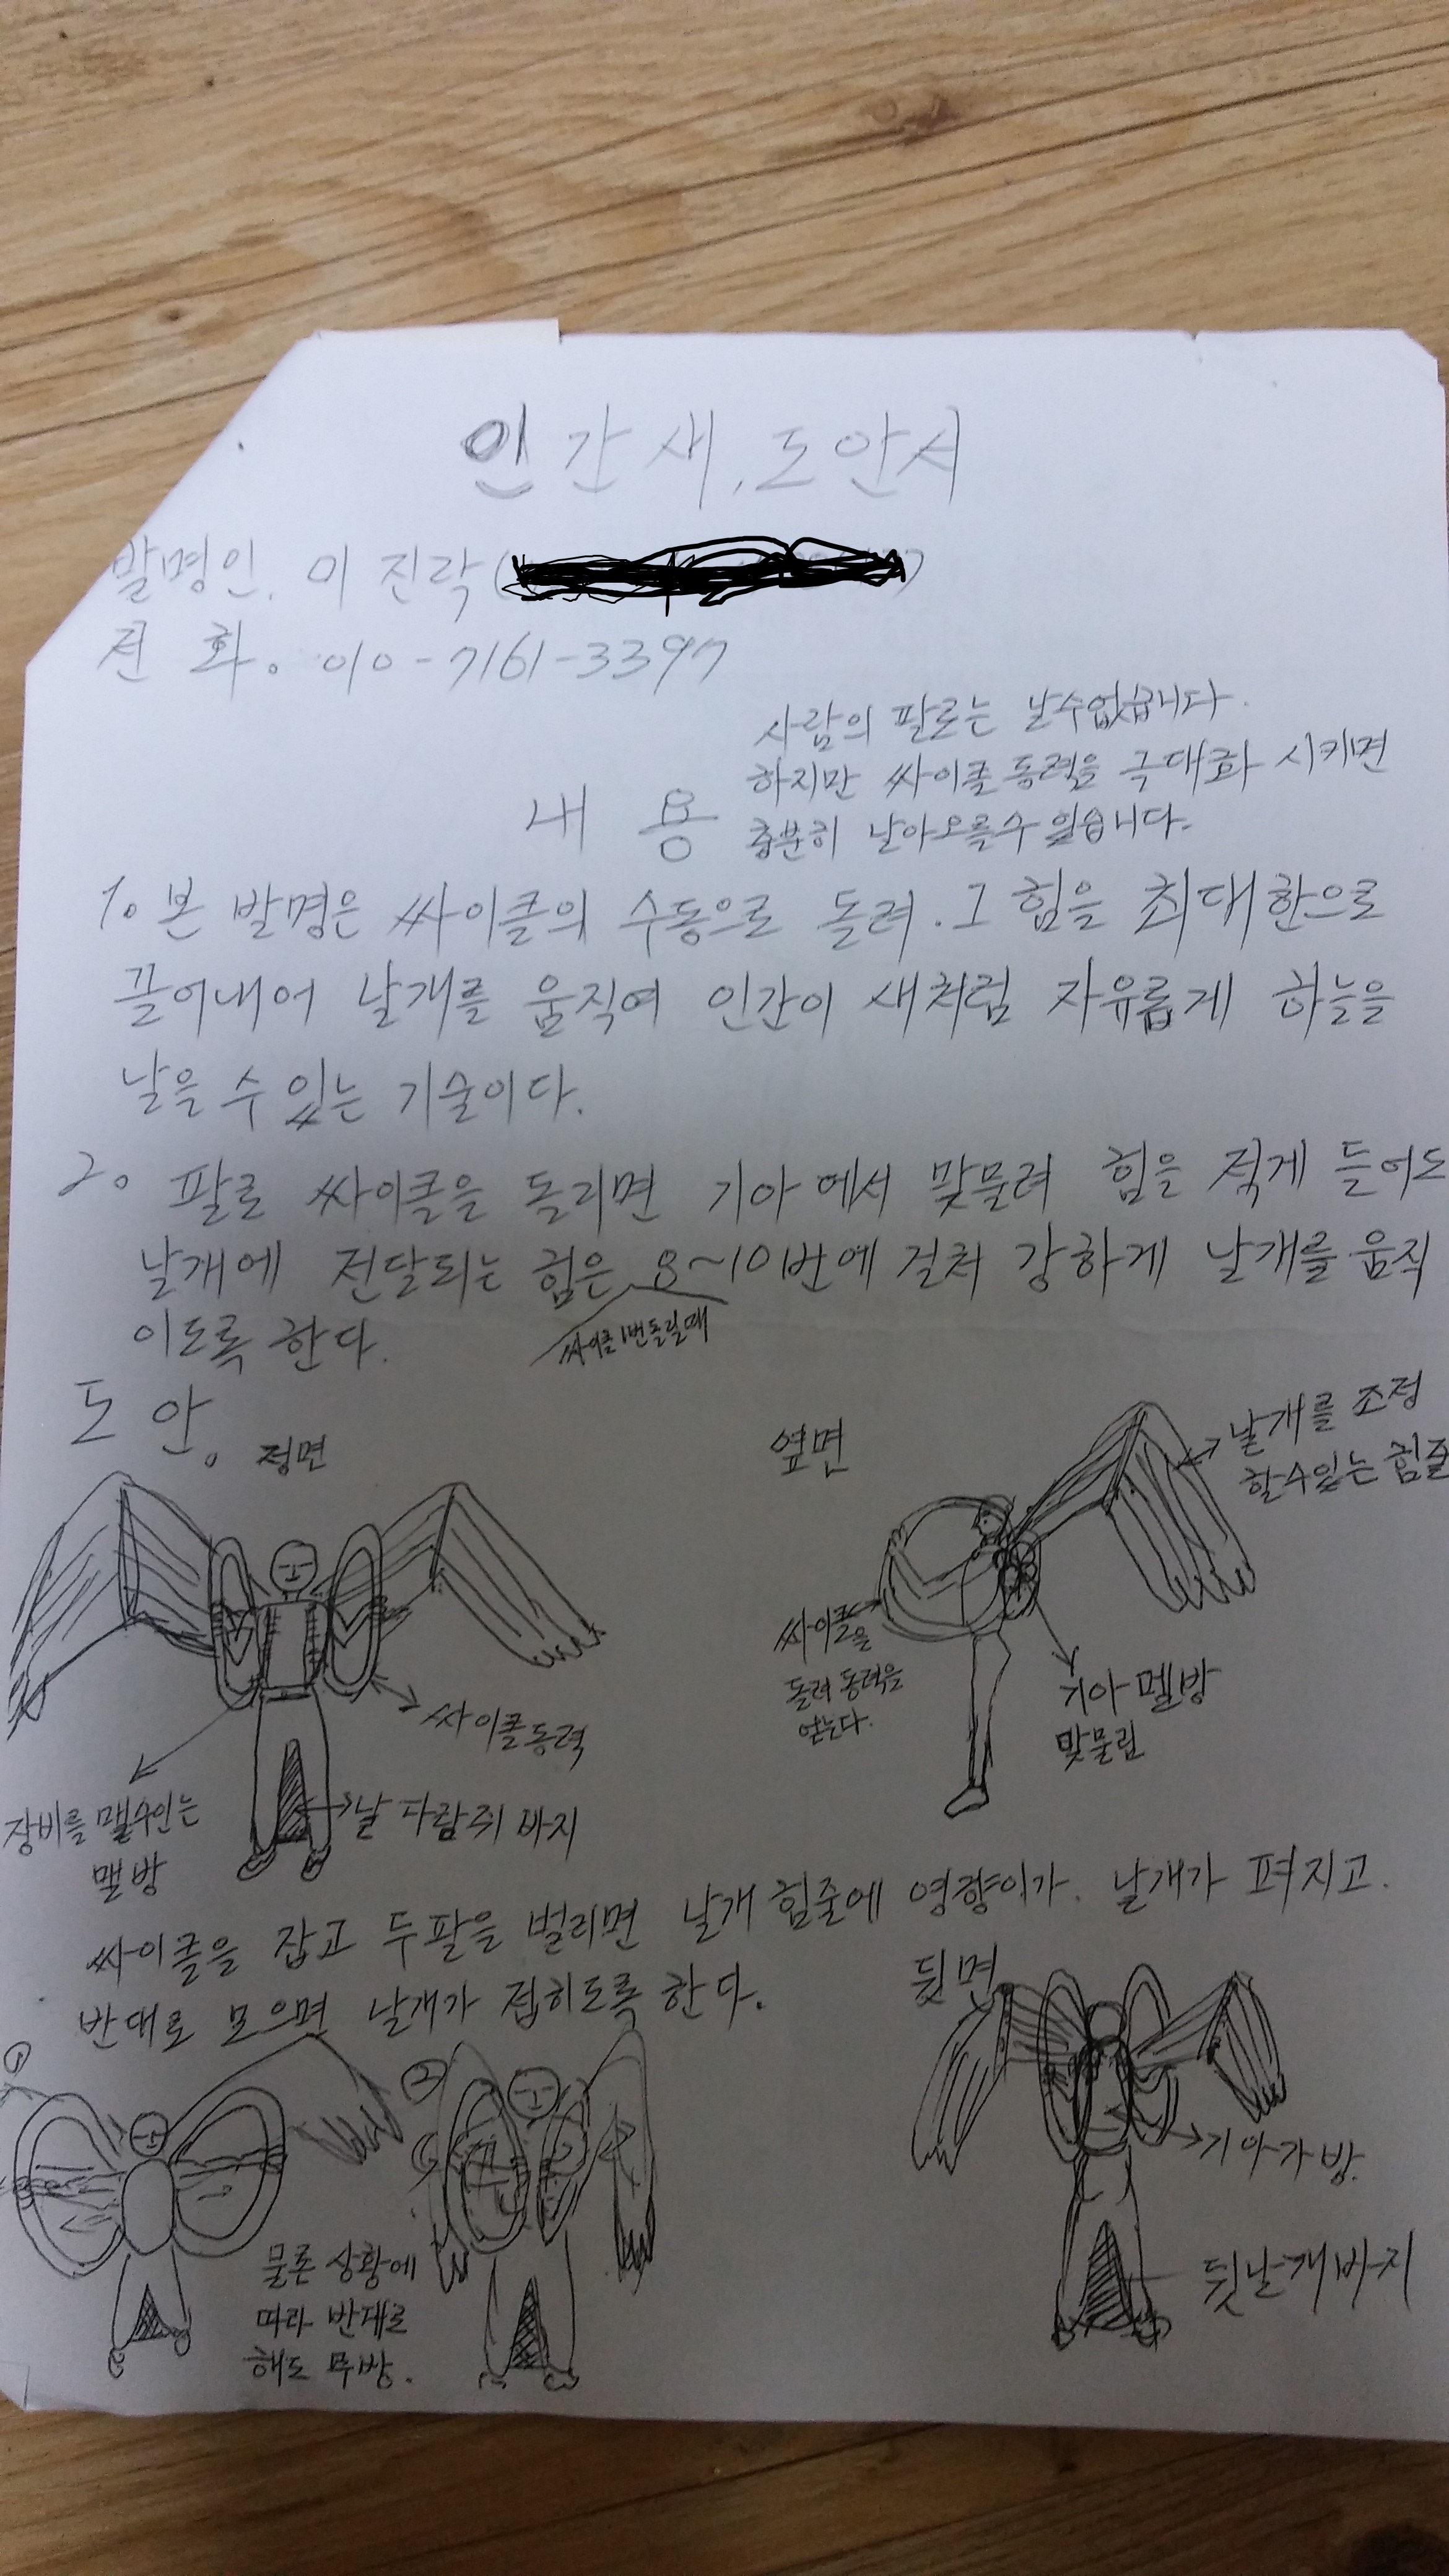 인간새, 도안서
발명인. 이진락 (
전 화. 010-7161-3397
사람의 팔로는 날수없습니다.
하지만 싸이클 동력을 극대화 시키면
충분히 날아오를수 있습니다.
내 용
1. 본 발명은 싸이클의 수동으로 돌려. 그 힘을 최대한으로
끌어내어 날개를 움직여 인간이 새처럼 자유롭게 하늘을
날을 수 있는 기술이다.
2. 팔로 싸이클을 돌리면 기아에서 맞물려 힘을 적게 들어도
날개에 전달되는 힘은 8~10번에 걸쳐 강하게 날개를 움직
이도록 한다.
싸이클 1번돌릴때
도 안.
정면
옆면
날개를 조정
할수있는 힘줄
싸이클을
돌려 동력을
얻는다.
기아 멜방
맞물림
싸이클동력
장비를 맬수있는
멜방
날 다람쥐 바지
싸이클을 잡고 두팔을 벌리면 날개 힘줄에 영향이가. 날개가 펴지고.
반대로 모으면 날개가 접히도록 한다.
뒷면
①
②
기아가방.
물론 상황에
따라 반대로
해도 무방.
뒷날개바지